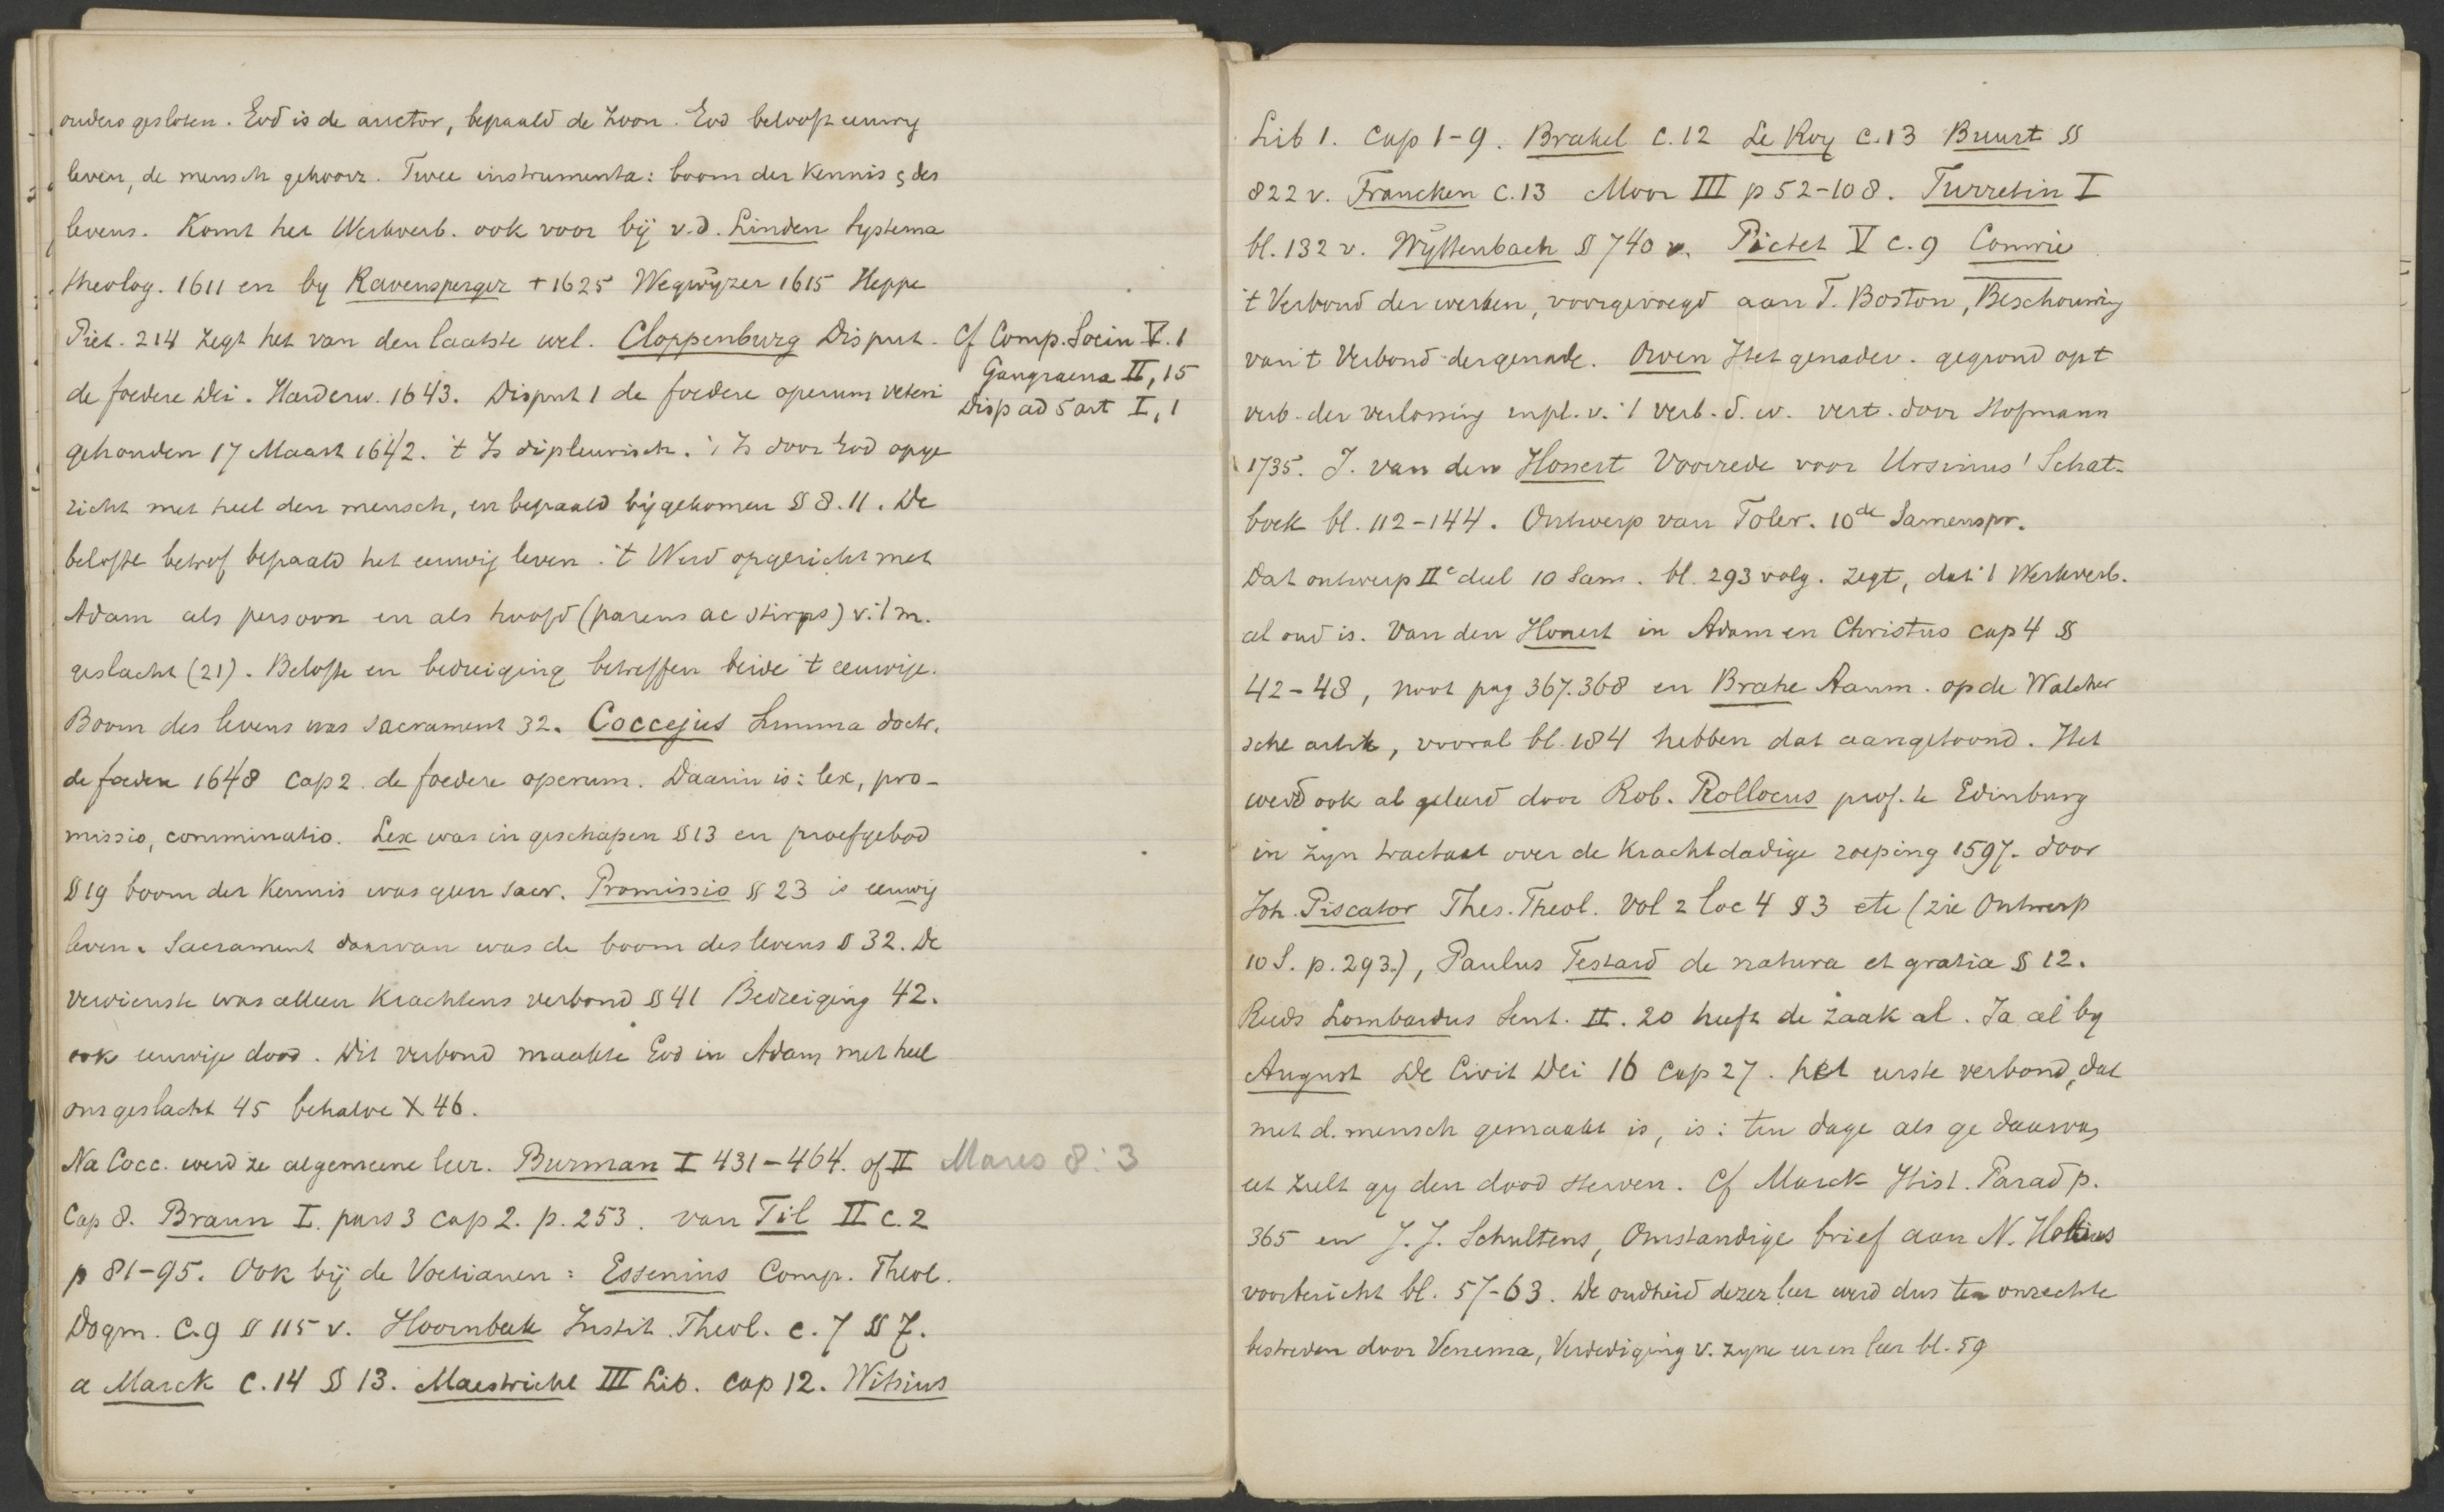 ouders gesloten. God is de auctor, bepaald de Zoon. God belooft eeuwig
leven, de mensch gehoorz. Twee instrumenta: boom der Kennis & des
levens. Komt het Werkverb. ook voor bij v.d. Linden Systema
theolog. 1611 en by Ravensperger † 1625 Wegwijzer 1615 Heppe
Piet. 214 zegt het van den laatste wel. Cloppenburg Disput.
de foedere Dei. Harderw. 1643. Disput 1 de foedere operum veteri
gehouden 17 Maart 1642. 't Is dipleurisch. 't Is door God opge
richt met heel den mensch, en bepaald bijgekomen § 8.11. De
belofte betrof bepaald het eeuwig leven. 't Werd opgericht met
Adam als persoon en als hoofd (parens ac stirps) v. 't m.
geslacht (21). Belofte en bedreiging betreffen beide 't eeuwige.
Boom des levens was sacrament 32. Coccejus Summa doctr.
de foedere 1648 Cap 2. de foedere operum. Daarin is: lex, pro-
missio, comminatio. Lex was in geschapen § 13 en proefgebod
§ 19 boom der Kennis was geen sacr. Promissio § 23 is eeuwig
leven. Sacrament daarvan was de boom des levens § 32. De
verdienste was alleen Krachtens verbond § 41 Bedreiging 42.
ook eeuwige dood. Dit verbond maakte God in Adam met heel
ons geslacht 45 behalve X 46.
Na Cocc. werd ze algemeene leer. Burman I 431-464. of II
Cap 8. Braun I. pars 3 cap 2. p. 253. van Til II c. 2
p 81-95. Ook bij de Voetianen: Essenius Comp. Theol.
Dogm. C. 9 § 115 v. Hoornbeek Instit. Theol. c. 7 § 7.
a Marck c. 14 § 13. Maestricht III Lib. cap 12. Witsius
Cf Comp. Socin V. 1
Gangraena II, 15
Disp ad 5 art I, 1
Mares 8:3
Lib 1. Cap 1-9. Brakel C. 12 Le Roy C. 13 Buurt §
822 v. Francken C. 13 Moor III p 52-108. Turretin I
bl. 132 v. Wyttenbach § 740 v. Pictet V c. 9 Comrie
't Verbond der werken, voorgevoegd aan T. Boston, Beschouwing
van 't Verbond der genade. Owen Het genadev. gegrond op t
verb. der verlossing expl. v. 't verb. d. w. vert. door Hofmann
1735. J. van den Honert Voorrede voor Ursinus' Schat-
boek bl. 112-144. Ontwerp van Toler. 10de Samenspr.
Dat ontwerp IIe deel 10 Sam. bl. 293 volg. zegt, dat 't Werkverb.
al oud is. Van den Honert in Adam en Christus cap 4 §
42-48, noot pag 367.368 en Brahe Aanm. op de Walcher
sche artik, vooral bl. 184 hebben dat aangetoond. Het
werd ook al geleerd door Rob. Rollocus prof. te Edinburg
in zyn tractaat over de Krachtdadige roeping 1597. door
Joh. Piscator Thes. Theol. Vol 2 loc 4 § 3 etc (zie Ontwerp
10 S. p. 293.), Paulus Testard de natura et gratia § 12.
Reeds Lombardus Sent. II. 20 heeft de zaak al. Ja al by
August De Civit Dei 16 Cap 27. het eerste verbond, dat
met d. mensch gemaakt is, is: ten dage als ge daarvan
eet zult gy den dood sterven. Cf Marck Hist. Parad p.
365 en J. J. Schultens, Omstandige brief aan N. Holtius
voorbericht bl. 57-63. De oudheid dezer leer werd dus ten onrechte
bestreden door Venema, Verdediging v. zyne eer en leer bl. 59